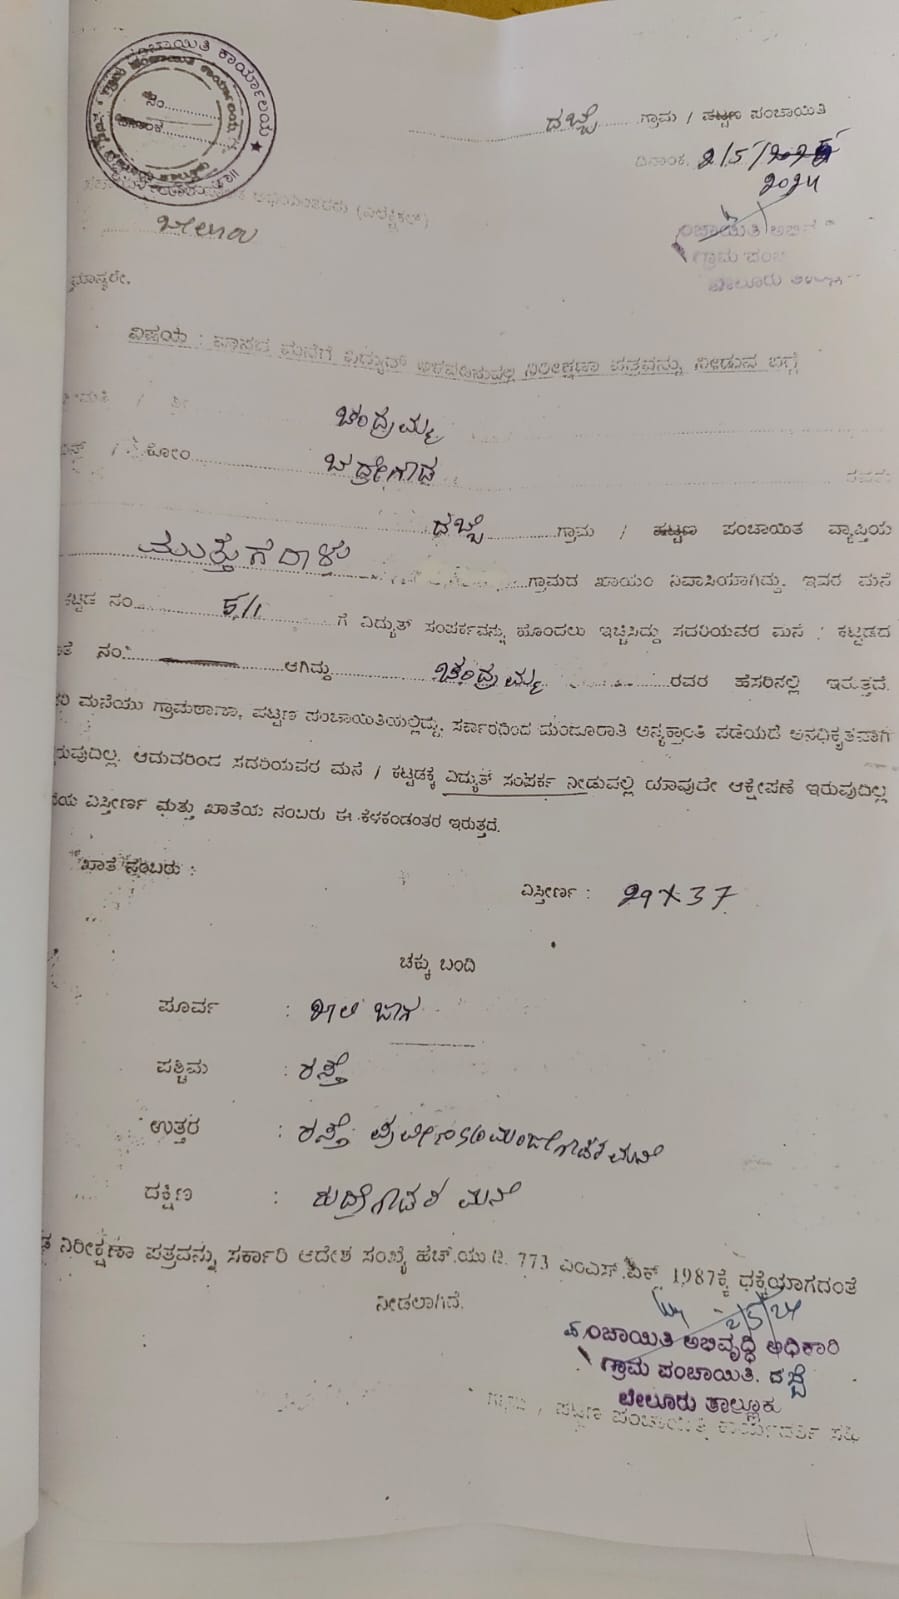 ಪಂಚಾಯಿತಿ ಕಾರ್ಯಾಲಯ
ನಂ
ದಿನಾಂಕ
ದಬ್ಬೆ ಗ್ರಾಮ / ಪಟ್ಟಣ ಪಂಚಾಯಿತಿ
ದಿನಾಂಕ. 2/5/2025
2024
(ಎಲೆಕ್ಟ್ರಿಕಲ್)
ಪಂಚಾಯಿತಿ
ಗ್ರಾಮ ಪಂಚ
ಮಾನ್ಯರೇ,
ವಿಷಯ : ವಾಸದ ಮನೆಗೆ ವಿದ್ಯುತ್ ನಿರೀಕ್ಷಣಾ ಪತ್ರವನ್ನು ನೀಡುವ ಬಗ್ಗೆ
ಚಂದ್ರಮ್ಮ
ಕೋಂ ಭದ್ರೇಗೌಡ
ದಬ್ಬೆ ಗ್ರಾಮ / ಪಟ್ಟಣ ಪಂಚಾಯಿತ ವ್ಯಾಪ್ತಿಯ
ಮುತ್ತುಗನಾಳು ಗ್ರಾಮದ ಖಾಯಂ ನಿವಾಸಿಯಾಗಿದ್ದು, ಇವರ ಮನೆ
ಕಟ್ಟಡ ನಂ. ಗೆ ವಿದ್ಯುತ್ ಸಂಪರ್ಕವನ್ನು ಹೊಂದಲು ಇಚ್ಚಿಸಿದ್ದು ಸದರಿಯವರ ಮನೆ : ಕಟ್ಟಡದ
ನಂ. ಆಗಿದ್ದು ಚಂದ್ರಮ್ಮ ರವರ ಹೆಸರಿನಲ್ಲಿ ಇರುತ್ತದೆ.
ಮನೆಯು ಗ್ರಾಮಠಾಣಾ, ಪಟ್ಟಣ ಪಂಚಾಯಿತಿಯಲ್ಲಿದ್ದು, ಸರ್ಕಾರದಿಂದ ಮಂಜೂರಾತಿ ಅನ್ಯಕ್ರಾಂತಿ ಪಡೆಯದೆ ಅನಧಿಕೃತವಾಗಿ
ರುವುದಿಲ್ಲ. ಆದುವರಿಂದ ಸದರಿಯವರ ಮನೆ / ಕಟ್ಟಡಕ್ಕೆ ವಿದ್ಯುತ್ ಸಂಪರ್ಕ ನೀಡುವಲ್ಲಿ ಯಾವುದೇ ಆಕ್ಷೇಪಣೆ ಇರುವುದಿಲ್ಲ
ಯ ವಿಸ್ತೀರ್ಣ ಮತ್ತು ಖಾತೆಯ ನಂಬರು ಈ ಕೆಳಕಂಡಂತರ ಇರುತ್ತದೆ.
ಖಾತೆ ನಂಬರು :
ವಿಸ್ತೀರ್ಣ : 29X37
ಚಕ್ಕು ಬಂದಿ
ಪೂರ್ವ : ಖಾಲಿ ಜಾಗ
ಪಶ್ಚಿಮ : ರಸ್ತೆ
ಉತ್ತರ : ರಸ್ತೆ
ದಕ್ಷಿಣ : ರುದ್ರೇಗೌಡರ ಮನೆ
ನಿರೀಕ್ಷಣಾ ಪತ್ರವನ್ನು ಸರ್ಕಾರಿ ಆದೇಶ ಸಂಖ್ಯೆ ಹೆಚ್.ಯು.ಡಿ. 773 ಎಂಎಸ್.ಪಿಕ್ 1987ಕ್ಕೆ ಧಕ್ಕೆಯಾಗದಂತೆ
ನೀಡಲಾಗಿದೆ.
2/5/24
ಪಂಚಾಯಿತಿ ಅಭಿವೃದ್ಧಿ ಅಧಿಕಾರಿ
ಗ್ರಾಮ ಪಂಚಾಯಿತಿ. ದಬ್ಬೆ
ಬೇಲೂರು ತಾಲ್ಲೂಕು
ಗ್ರಾಮ / ಪಟ್ಟಣ ಪಂಚಾಯಿತಿ ಕಾರ್ಯದರ್ಶಿ ಸಹಿ